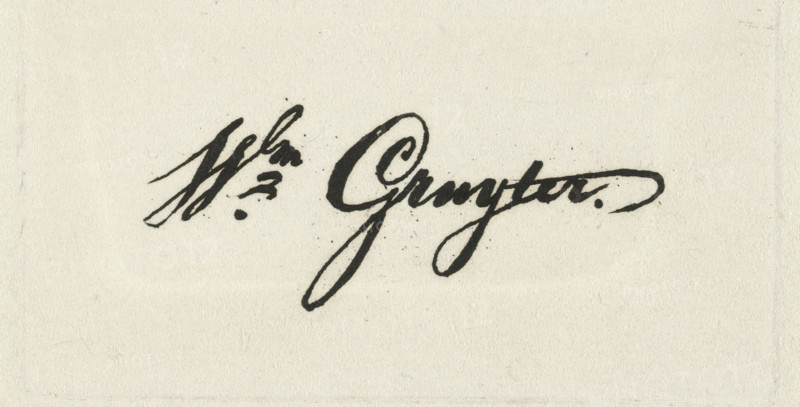 Wlm Gruyter.